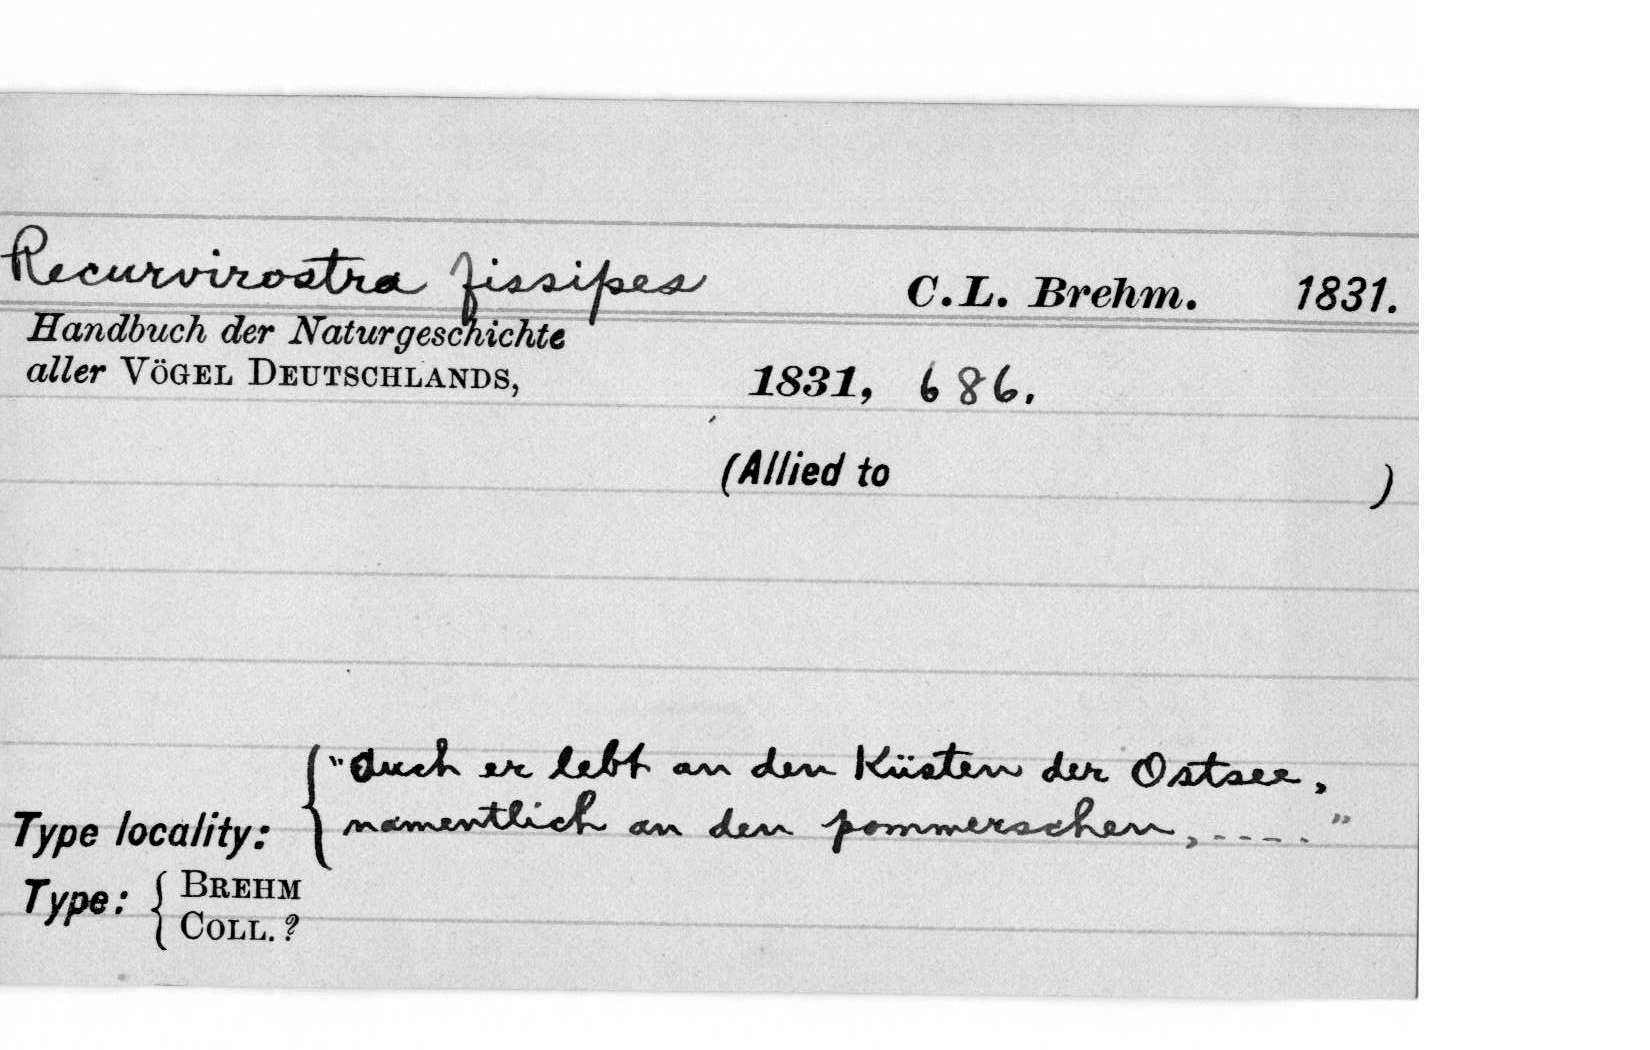 Recurvirostra fissipes C. L. Brehm. 1831.
Handbuch der Naturgeschichte
aller VÖGEL DEUTSCHLANDS, 1831, 686.
(Allied to )
"Auch er lebt an den Küsten der Ostsee,
Type locality: namentlich an den pommerschen, - - - - ."
Type: { BREHM
COLL. ?